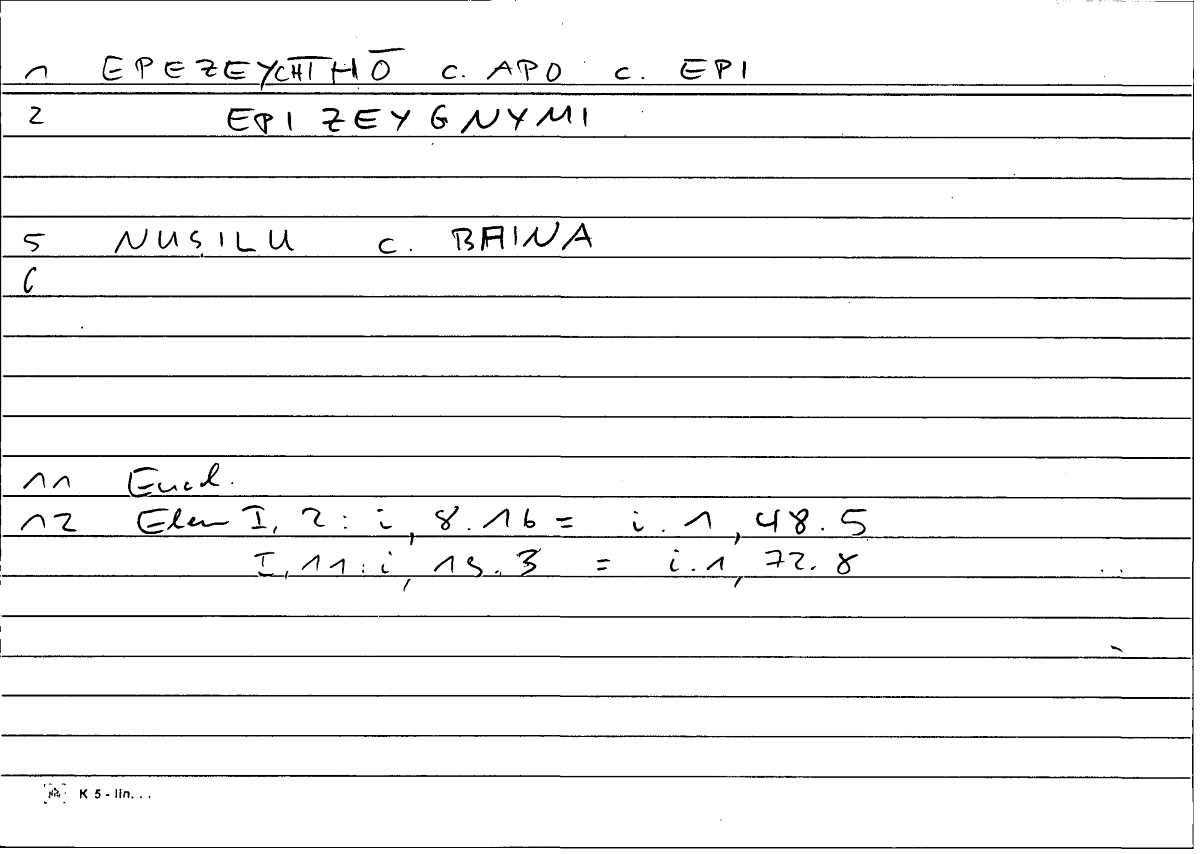 1 EPEZEYCHTHŌ c. APO c. EPI
2 EPIZEYGNYMI
5 NUṢILU c. BAINA
6
11 Eucl.
12 Elem I, 2 : i, 8.16 = i.1, 48.5
I, 11 : i, 19.3 = i.1, 72.8
K 5 - lin...